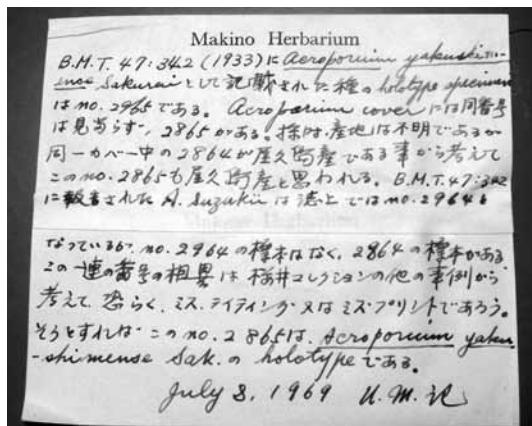 Makino Herbarium
B.M.T. 47:342 (1933) に Acroporium yakushim-
ense Sakurai として記載された種の holotype specimen
は no. 2965 である。 Acroporium cover には同番号
は見当らず、2865 がある。採日、産地は不明であるが
同一カバー中の 2864 が屋久島産である事から考えて
この no. 2865 も屋久島産と思われる。 B.M.T. 47:342
に報告された A. Suzukii は誌上では no. 2964 と
なっているが、no. 2964 の標本はなく、2864 の標本がある
この一連の番号の相異は桜井コレクションの他の事例から
考えて、恐らく、ミス・ライティング又はミス・プリントであろう。
そうとすれば この no. 2865 は、Acroporium yaku-
-shimense Sak. の holotype である。
July 8, 1969 U. M. 記